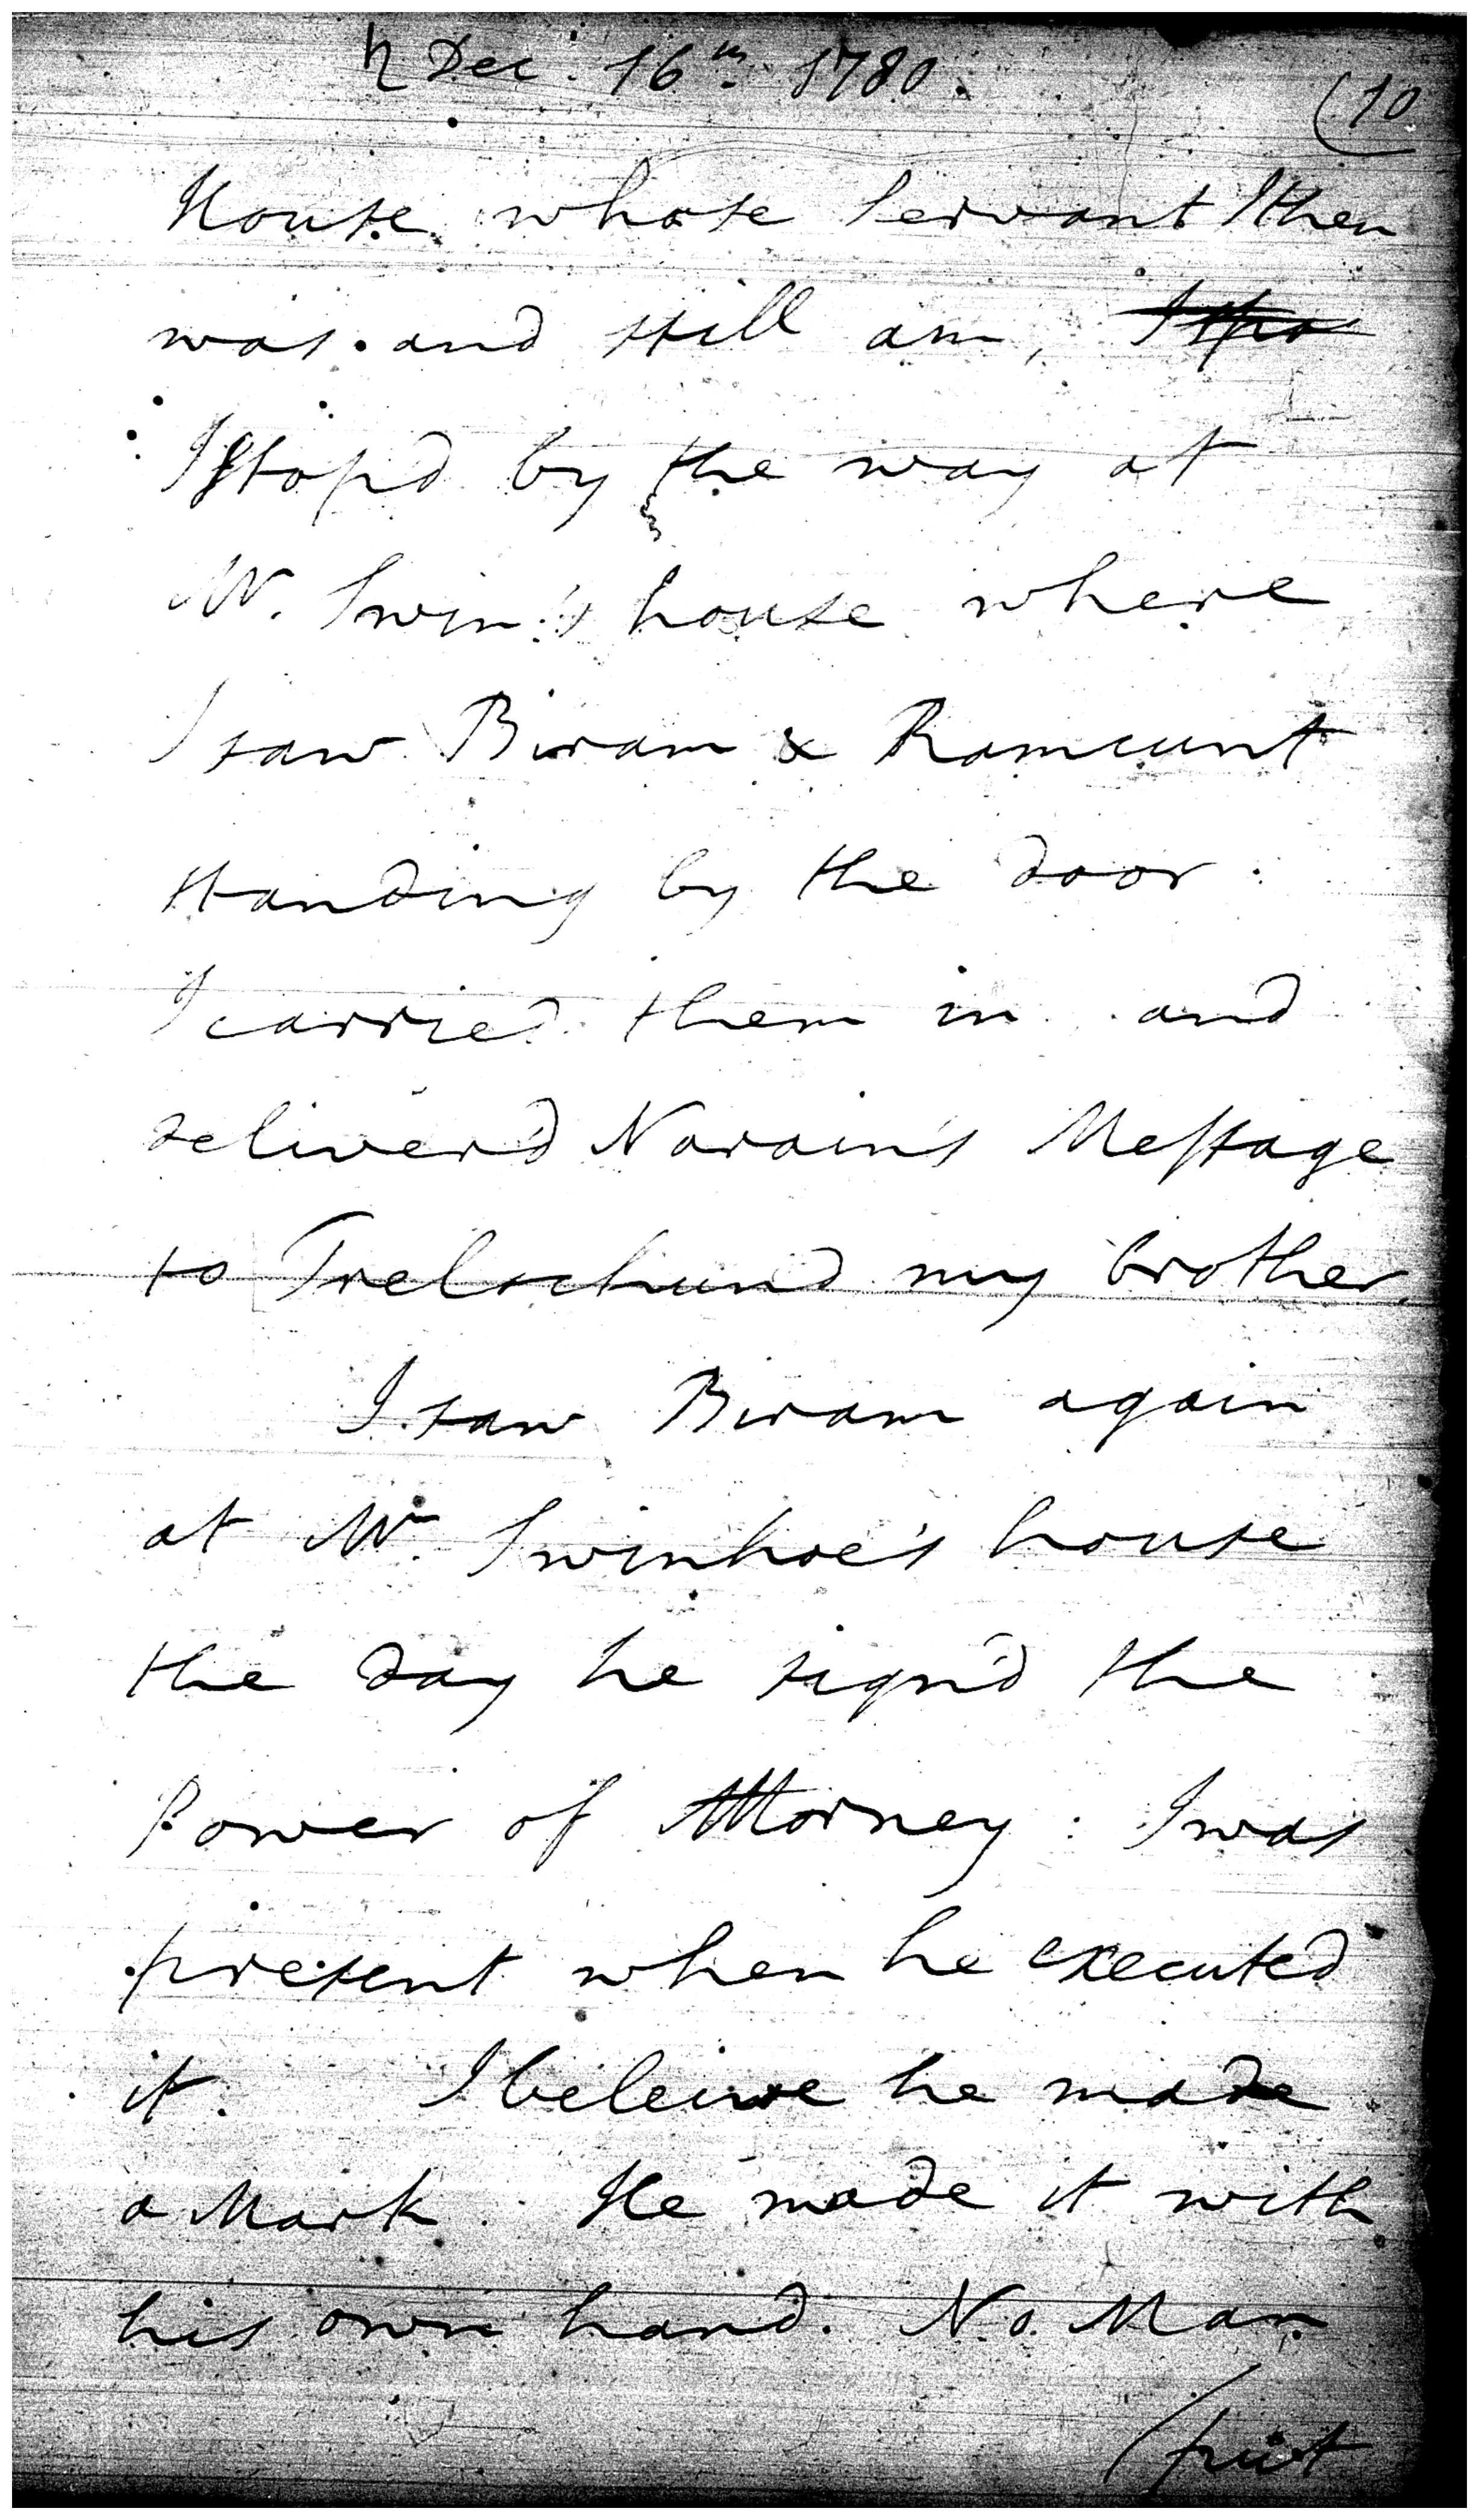 ♄ Dec. 16th. 1780.
(10
House whose Servant I then
was and still am,
I stop'd by the way at
Mr. Swin:'s house where
I saw Biram & Ramcunt
standing by the door:
I carried them in and
deliver'd Narain's Message
to Trelochund my brother.
I saw Biram again
at Mr. Swinhoe's house
the day he sign'd the
Power of Attorney: I was
present when he executed
it. I beleive he made
a Mark. He made it with
his own hand. No Man
(put